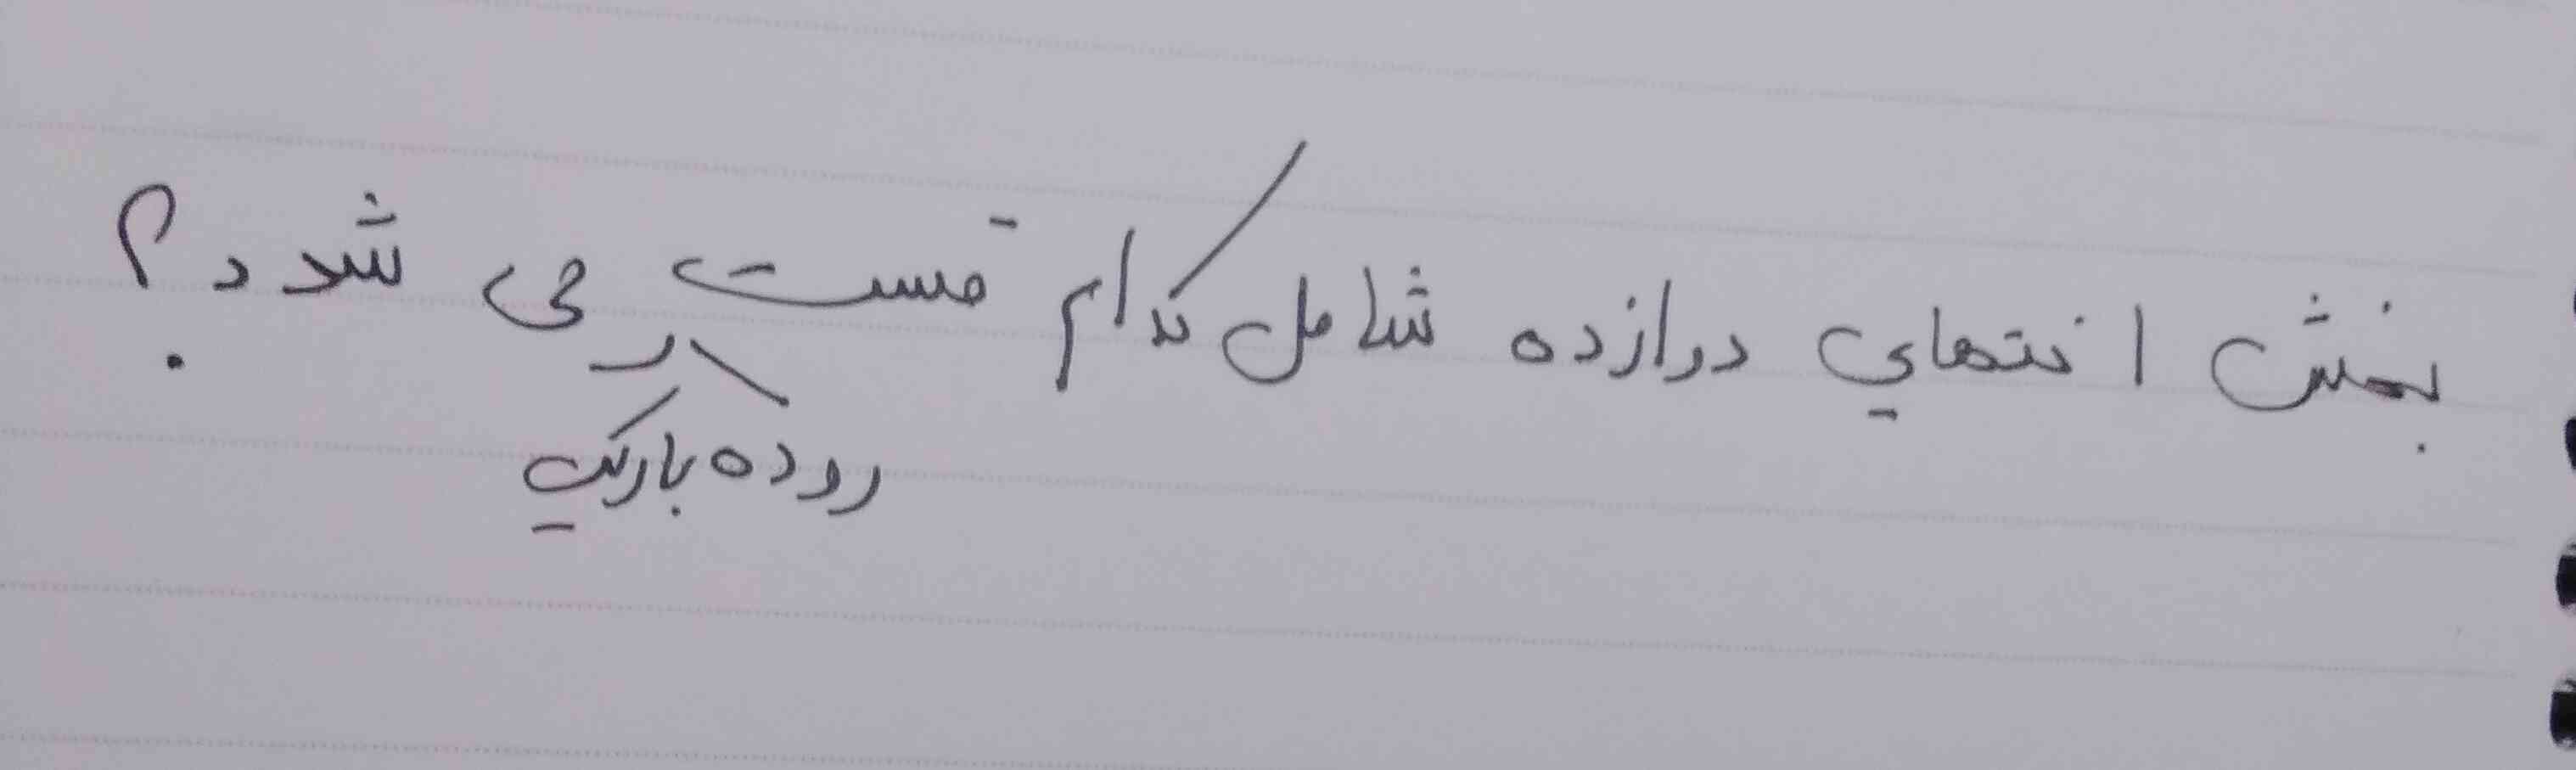 بخش انتهای دوازده شامل کدام قسمت می شود؟
از روده باریک